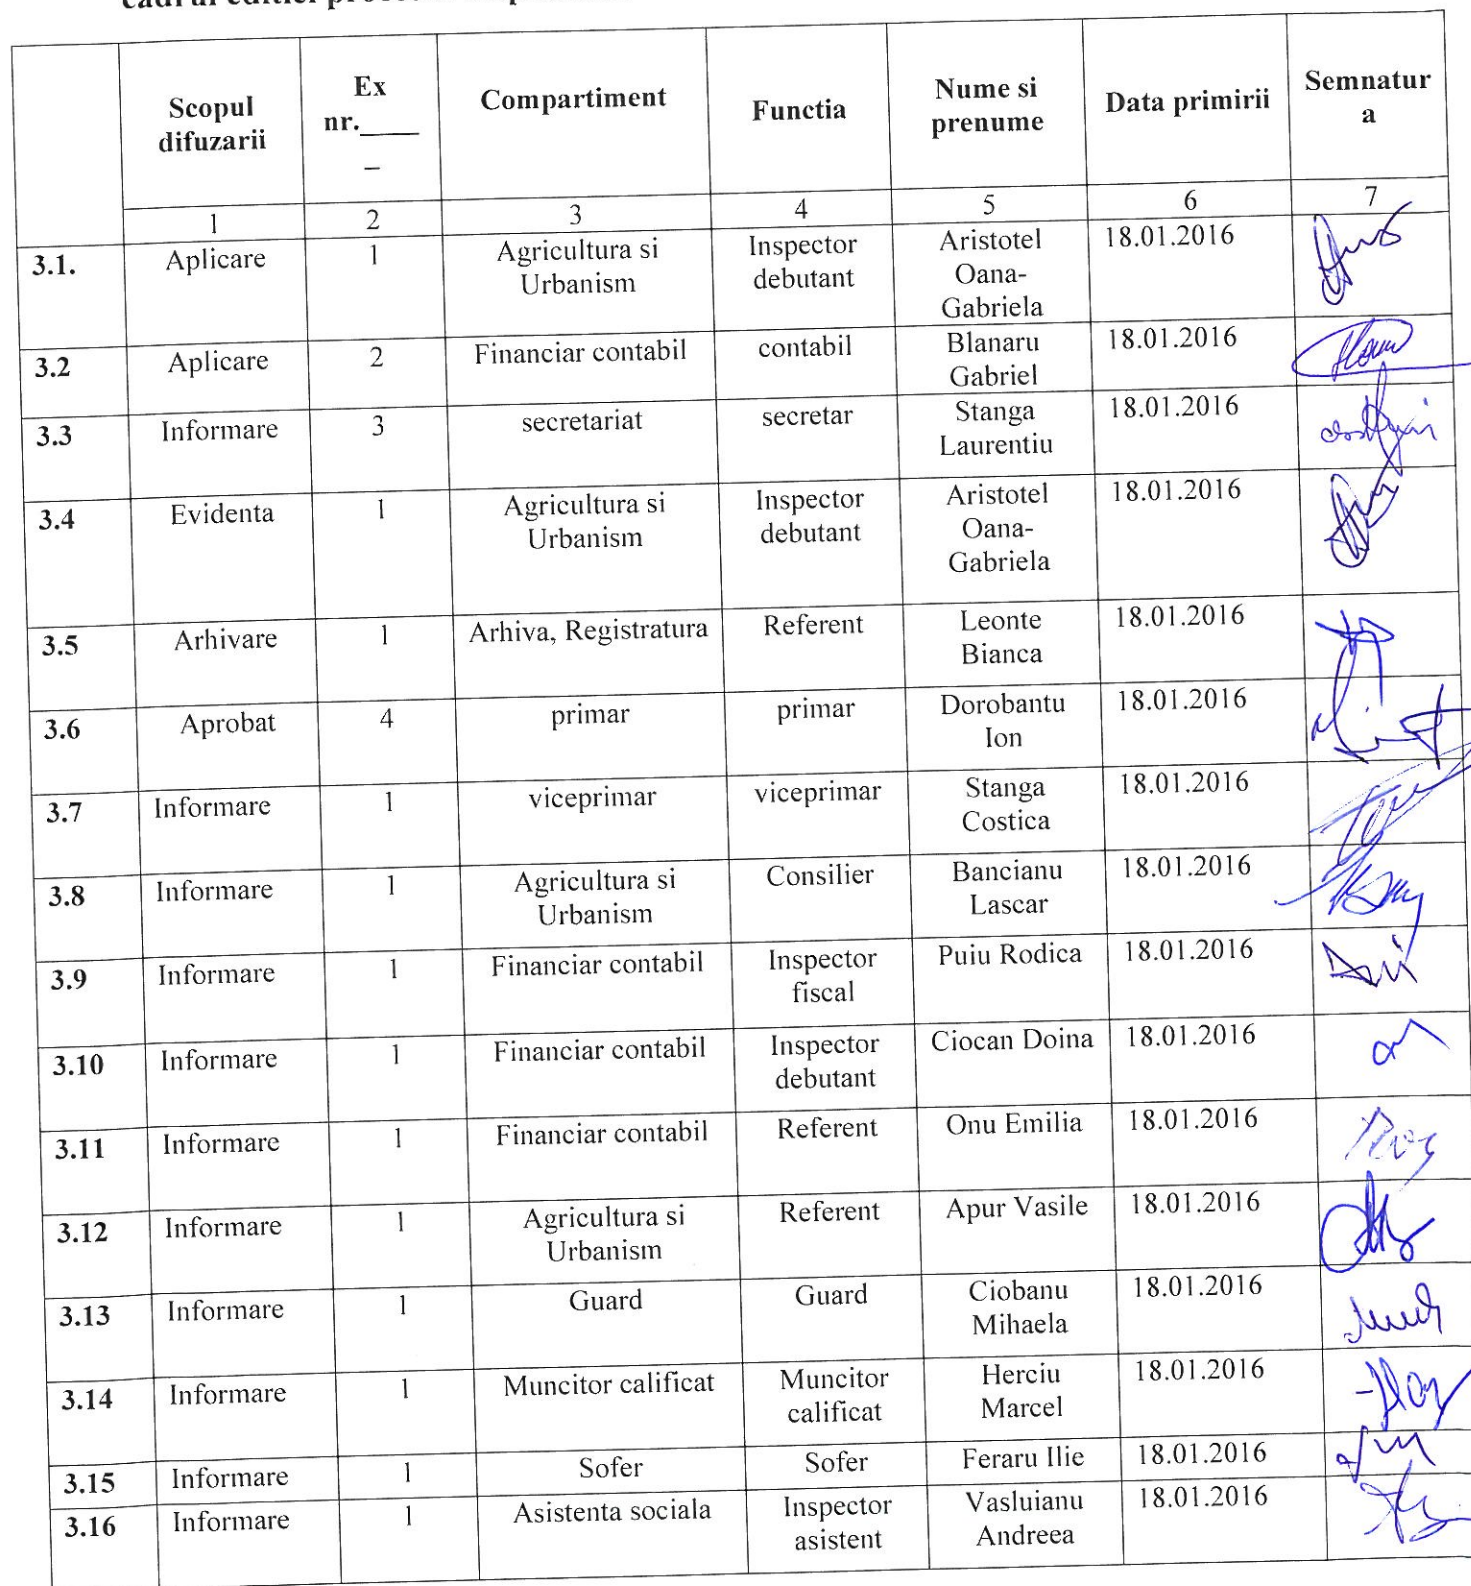 Scopul difuzarii | Ex nr.____ _ | Compartiment | Functia | Nume si prenume | Data primirii | Semnatur a
1 | 2 | 3 | 4 | 5 | 6 | 7
3.1. | Aplicare | 1 | Agricultura si Urbanism | Inspector debutant | Aristotel Oana-Gabriela | 18.01.2016
3.2 | Aplicare | 2 | Financiar contabil | contabil | Blanaru Gabriel | 18.01.2016
3.3 | Informare | 3 | secretariat | secretar | Stanga Laurentiu | 18.01.2016
3.4 | Evidenta | 1 | Agricultura si Urbanism | Inspector debutant | Aristotel Oana-Gabriela | 18.01.2016
3.5 | Arhivare | 1 | Arhiva, Registratura | Referent | Leonte Bianca | 18.01.2016
3.6 | Aprobat | 4 | primar | primar | Dorobantu Ion | 18.01.2016
3.7 | Informare | 1 | viceprimar | viceprimar | Stanga Costica | 18.01.2016
3.8 | Informare | 1 | Agricultura si Urbanism | Consilier | Bancianu Lascar | 18.01.2016
3.9 | Informare | 1 | Financiar contabil | Inspector fiscal | Puiu Rodica | 18.01.2016
3.10 | Informare | 1 | Financiar contabil | Inspector debutant | Ciocan Doina | 18.01.2016
3.11 | Informare | 1 | Financiar contabil | Referent | Onu Emilia | 18.01.2016
3.12 | Informare | 1 | Agricultura si Urbanism | Referent | Apur Vasile | 18.01.2016
3.13 | Informare | 1 | Guard | Guard | Ciobanu Mihaela | 18.01.2016
3.14 | Informare | 1 | Muncitor calificat | Muncitor calificat | Herciu Marcel | 18.01.2016
3.15 | Informare | 1 | Sofer | Sofer | Feraru Ilie | 18.01.2016
3.16 | Informare | 1 | Asistenta sociala | Inspector asistent | Vasluianu Andreea | 18.01.2016